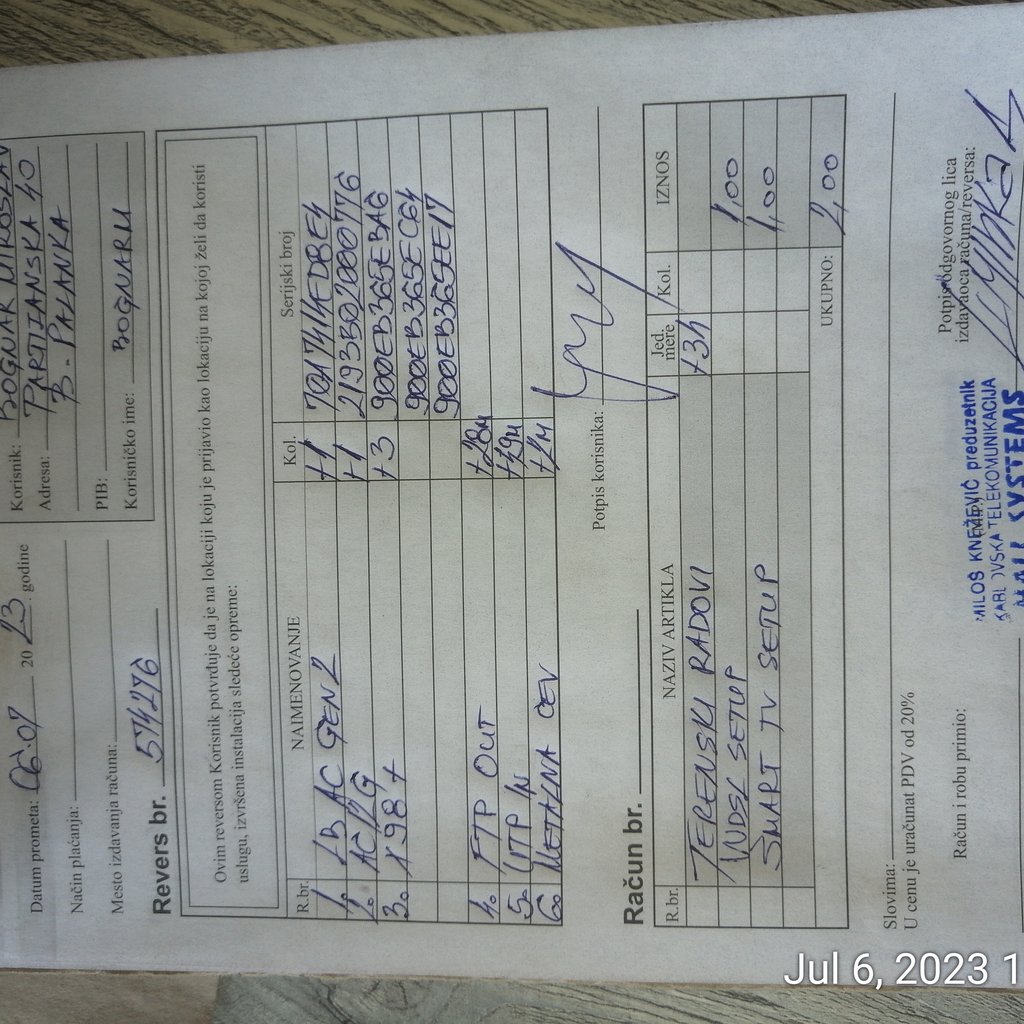 Datum prometa: 06.07 2023. godine
Način plaćanja:
Mesto izdavanja računa:
Korisnik: BOGNAR MIROSLAV
Adresa: PARTIZANSKA 40
B. PALANKA
PIB:
Korisničko ime: BOGNARM
Revers br. 574276
Ovim reversom Korisnik potvrđuje da je na lokaciji koju je prijavio kao lokaciju na kojoj želi da koristi
uslugu, izvršena instalacija sledeće opreme:
R.br. NAIMENOVANJE Kol. Serijski broj
1. LB AC GEN2 +1
AC +1 2193B02000776
3. X98+ +3 900EB365EBA6
900EB365EC64
900EB365EE17
4. FTP OUT +28M
5. UTP IN
6. METALNA CEV +2M
Potpis korisnika:
Račun br.
R.br. NAZIV ARTIKLA Jed. mere Kol. IZNOS
TERENSKI RADOVI +3h
WDSL SETUP 1,00
SMART TV SETUP 1,00
UKUPNO: 2,00
Slovima:
U cenu je uračunat PDV od 20%
Račun i robu primio:
Potpis odgovornog lica
izdavaoca računa/reversa:
MILOŠ KNEŽEVIĆ preduzetnik
KABLOVSKA TELEKOMUNIKACIJA
SYSTEMS
Jul 6, 2023 1